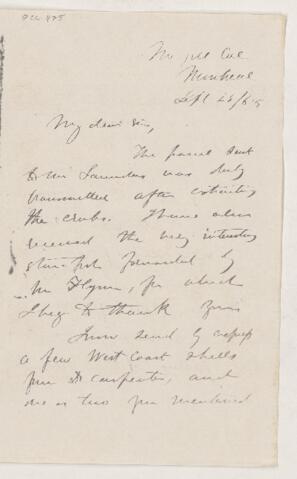 Montreal
Sept 25/65
My dear Sir,
The parcel sent
to Mr Saunders was duly
transmitted after extracting
the crabs. I have also
received the very interesting
star-fish forwarded by
Mr Flynn, for which
I beg to thank you
I now send by express
a few West Coast shells
from Dr Carpenter, and
one or two you mentioned